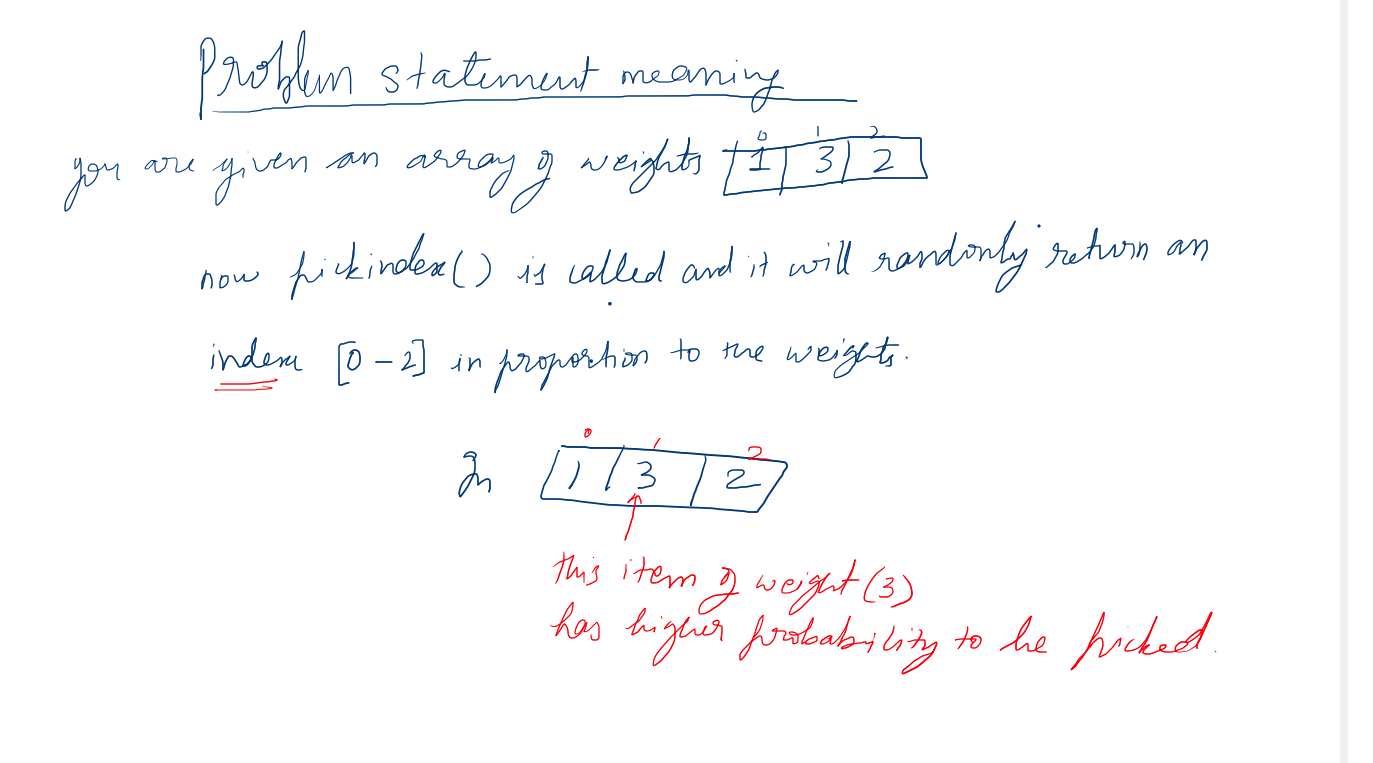 Problem statement meaning
0 1 2
you are given an array of weights 1 3 2
now pickindex() is called and it will randomly return an
index [0-2] in proportion to the weights.
0 1 2
In 1 3 2
this item of weight (3)
has higher probability to be picked.